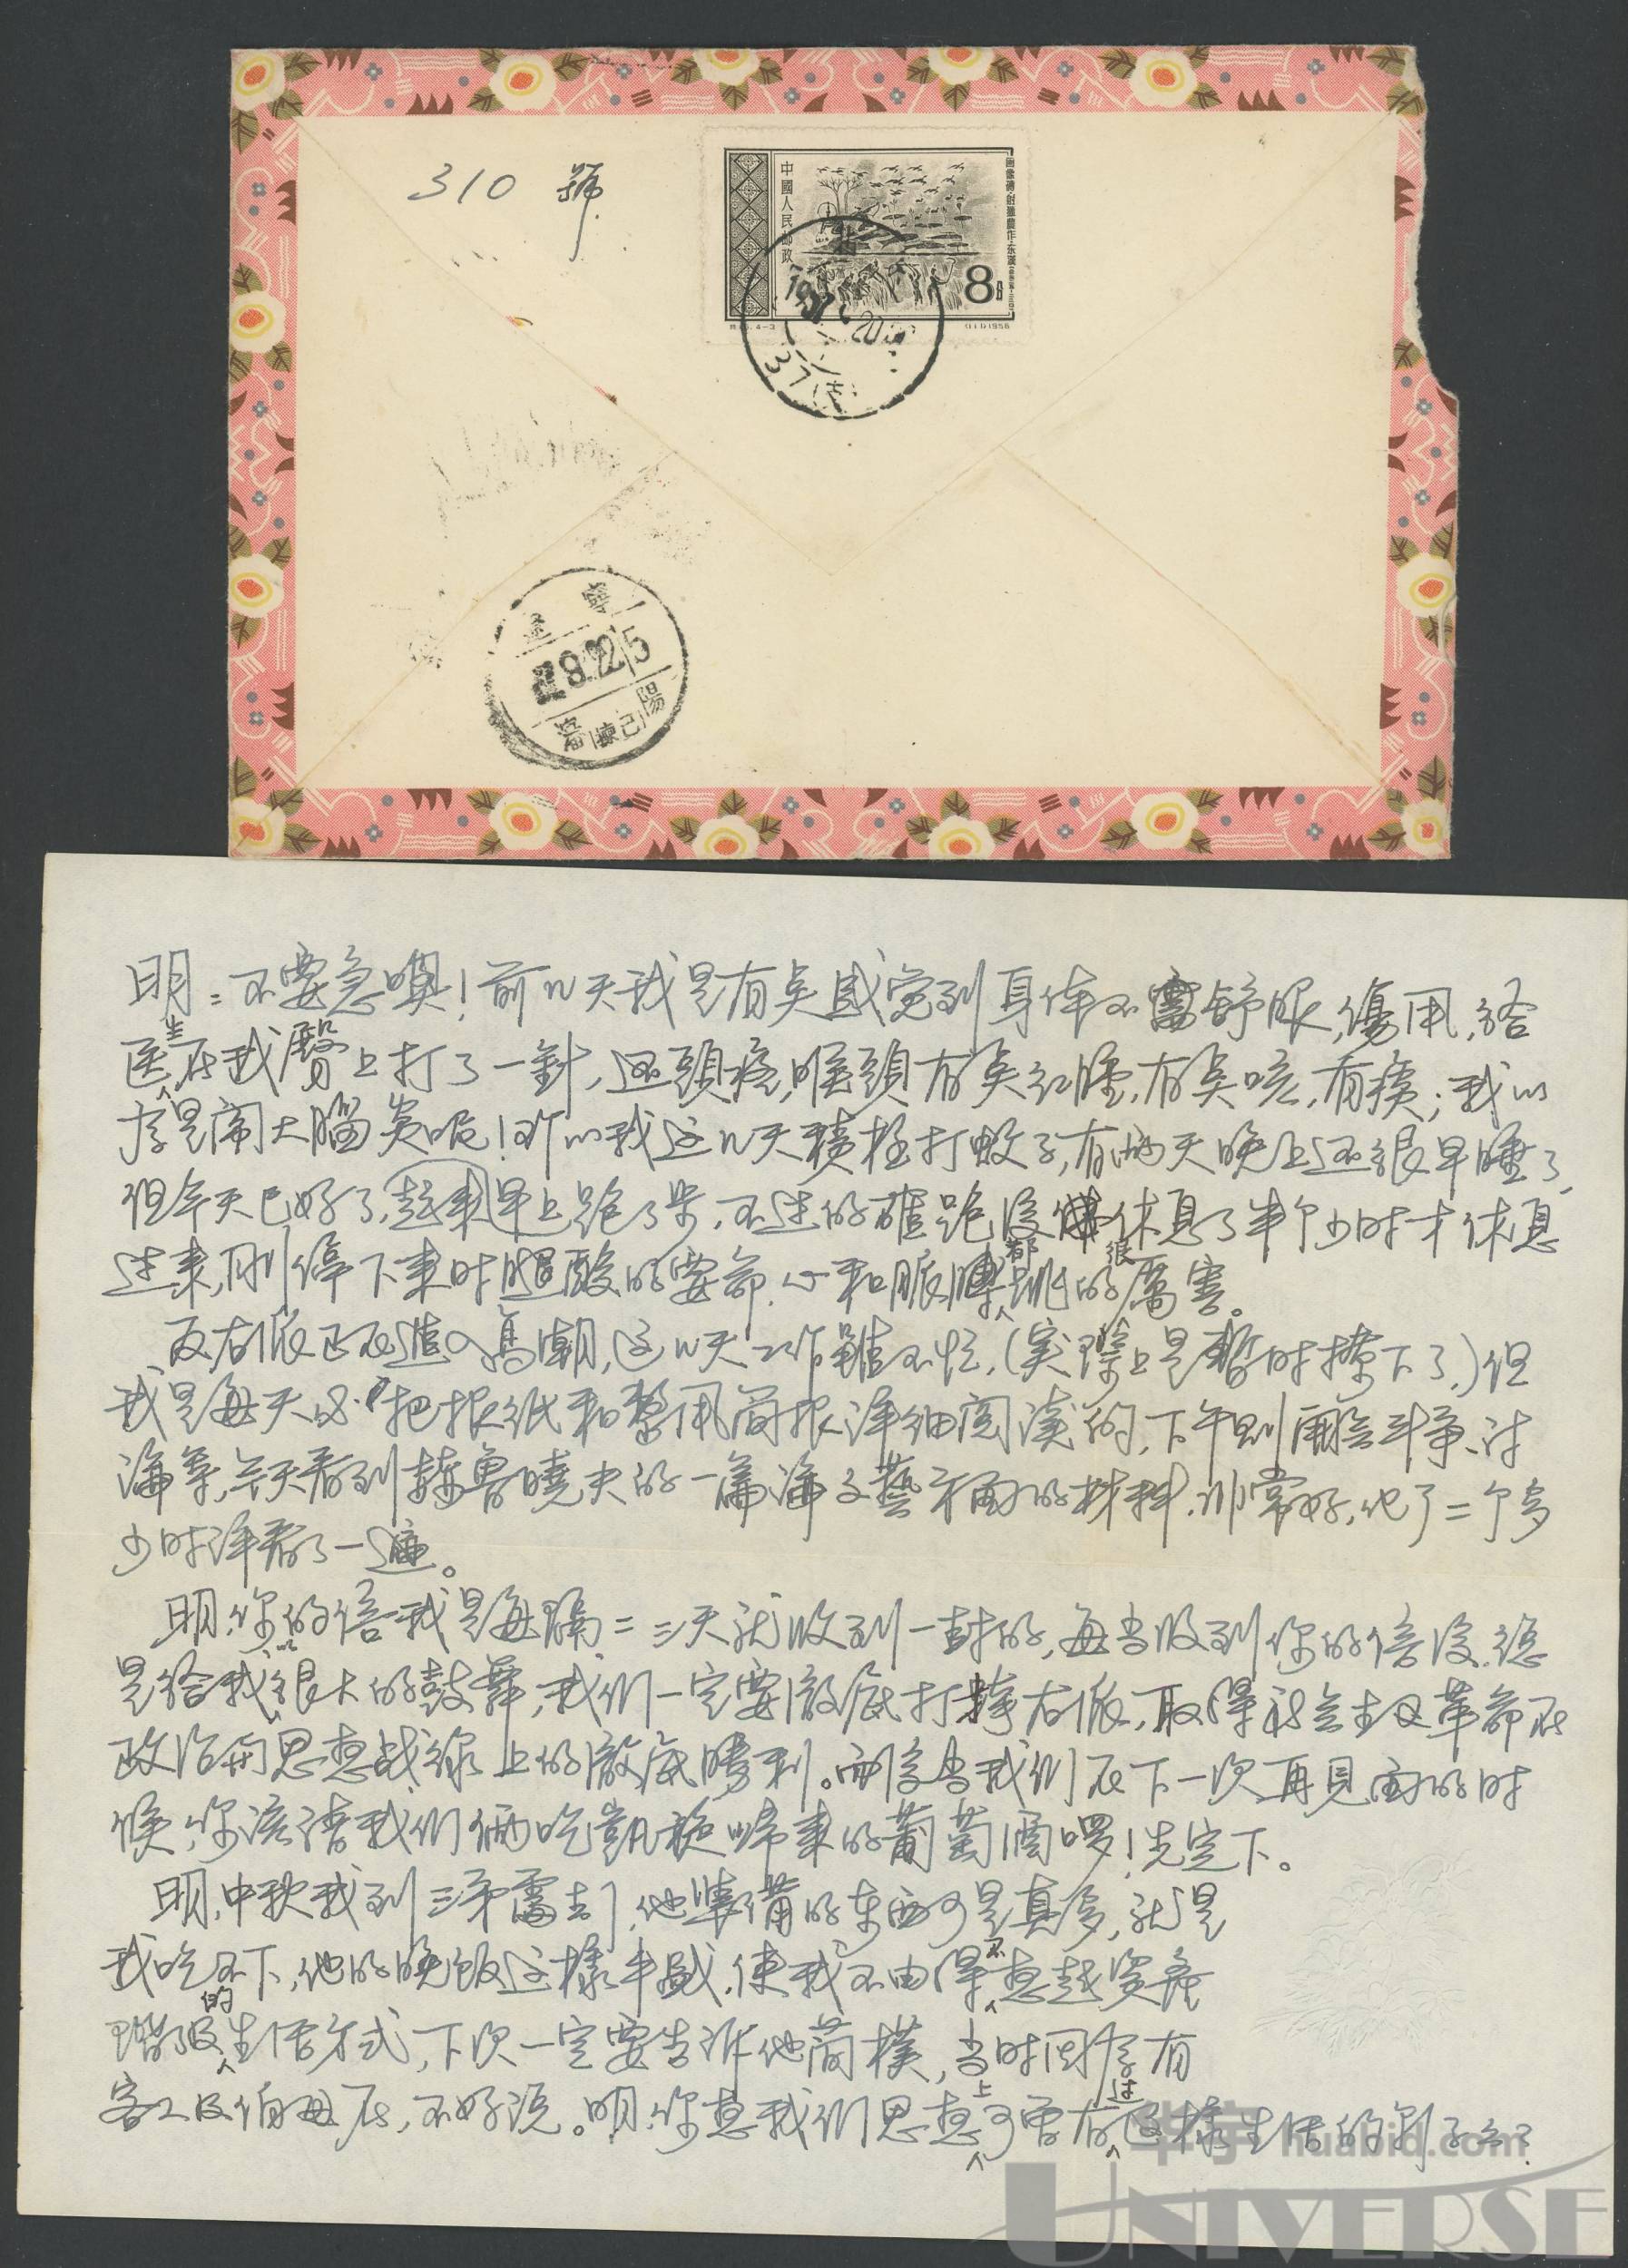 310 號
中國人民郵政
8分
1956
37(支)
明：不要急噢！前几天我是有点感觉到身体不舒服，傷風，
医生在我臀上打了一針，还頭疼，喉頭有点红腫，有点咳，有痰；我以
为是闹大腦炎呢！所以我这几天積極打蚊子，有两天晚上还很早睡了，
但今天已好了，起来早上跑了步，不过的確跑後休息了半个少时才休息
过来，刚停下来时腿酸的要命，心和脈膊都跳的很厲害。
反右派正在进入高潮，这几天工作雖不忙，（实際上是暫时撩下了，）但
我是每天必把报纸和整風简报详细阅讀的，下午则開会斗争、讨
論等，今天看到魯曉夫的一篇論文藝方面的材料，非常好，化了二个多
少时详看了一遍。
明，你的信我是每隔二三天就收到一封的，每当收到你的信後，總
是给我以很大的鼓舞，我们一定要澈底打擊右派，取得社会主义革命在
政治和思想战線上的澈底勝利。而後当我们在下一次再見面的时
候，你该请我们俩吃凱旋歸来的葡萄酒啰！先定下。
明，中秋我到三弟處去了，他準備的东西可是真多，就是
我吃不下，他的晚饭这樣丰盛，使我不由得不想起资產
階級的生活方式，下次一定要告诉他简樸，当时因为有
客人及伯母在，不好说。明，你想我们思想上可曾有过这樣生活的影子么？
华宇 huabid.com
UNIVERSE